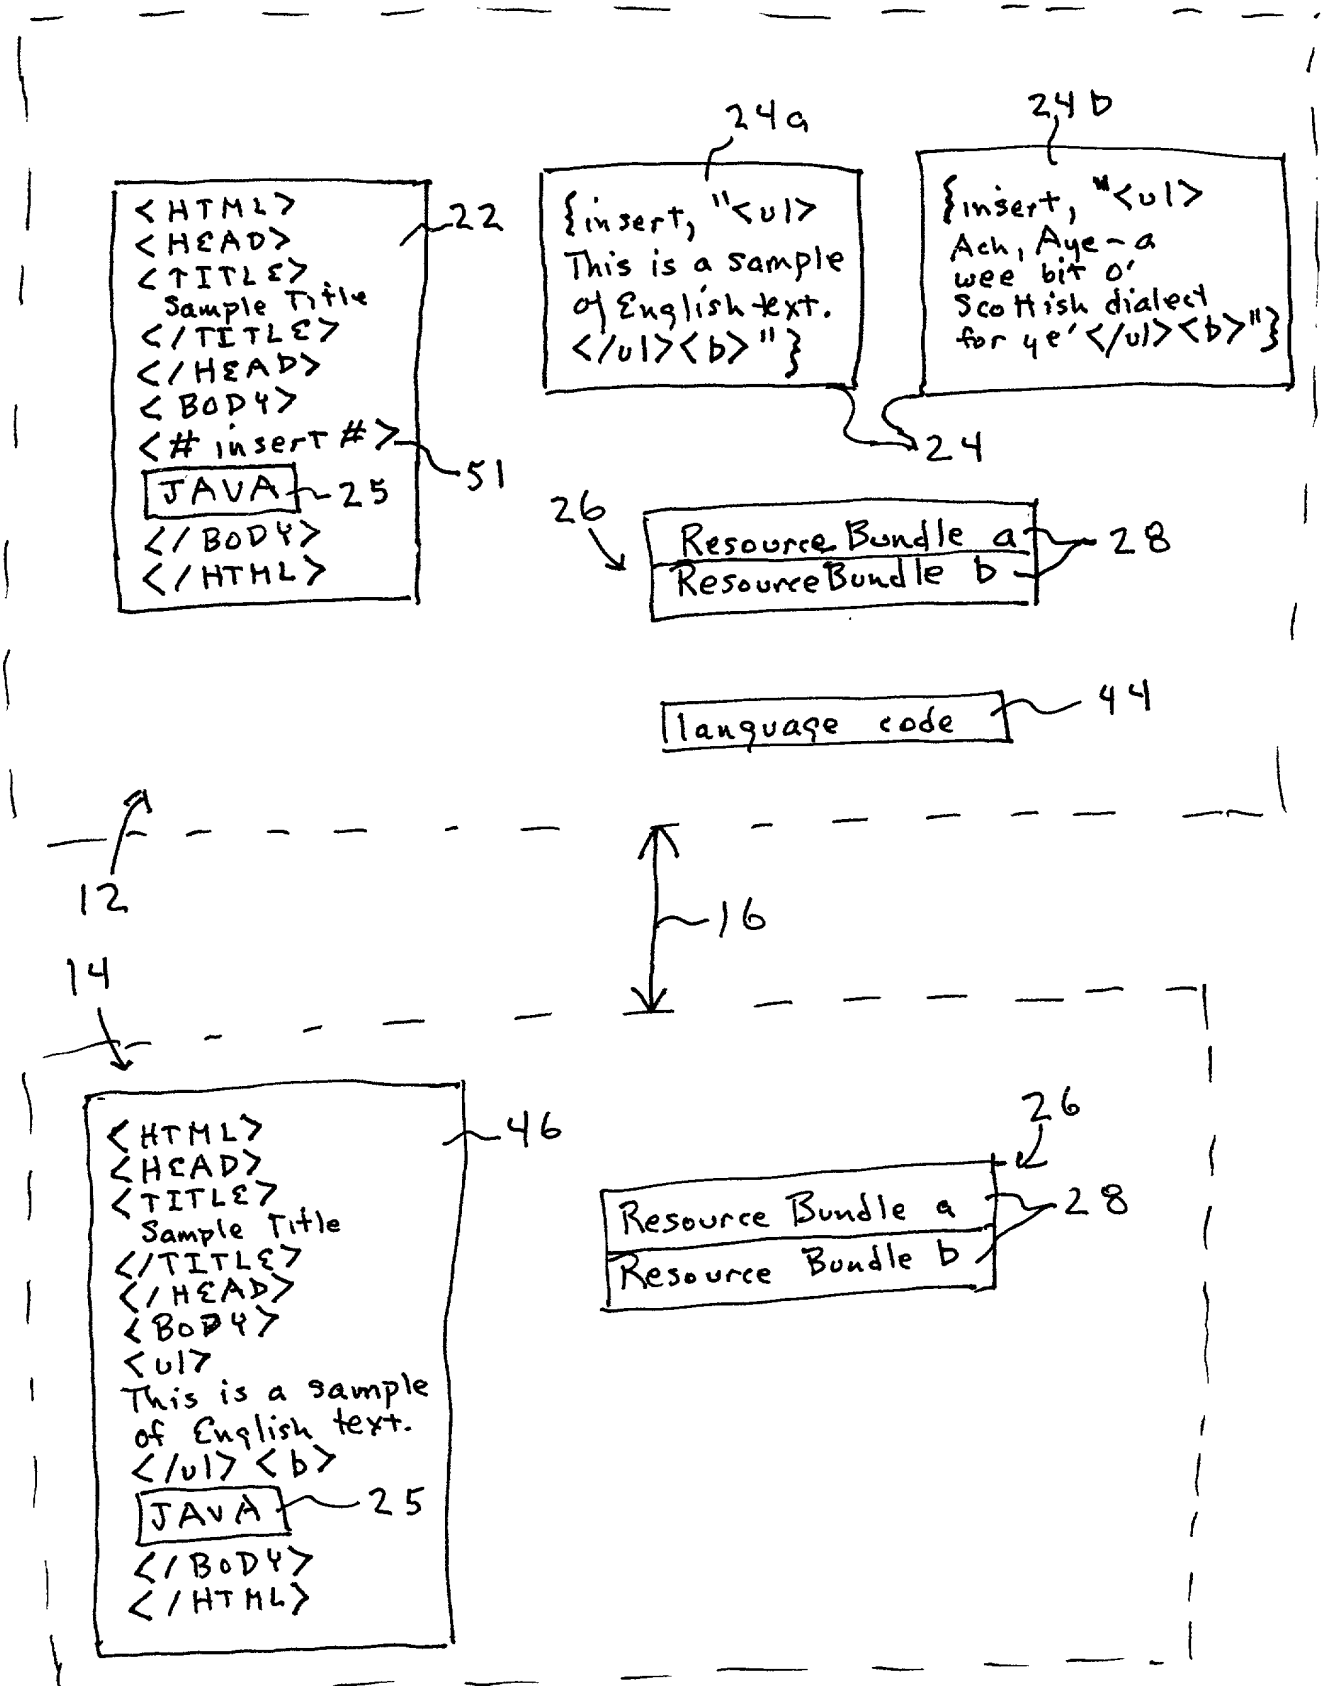 24a
24b
<HTML>
<HEAD>
<TITLE>
Sample Title
</TITLE>
</HEAD>
<BODY>
<# insert #>
JAVA
</BODY>
</HTML>
22
51
25
{insert, "<ul>
This is a sample
of English text.
</ul><b>"}
{insert, "<ul>
Ach, Aye - a
wee bit o'
Scottish dialect
for ye'</ul><b>"}
24
26
Resource Bundle a
Resource Bundle b
28
language code
44
12
16
14
<HTML>
<HEAD>
<TITLE>
Sample Title
</TITLE>
</HEAD>
<BODY>
<ul>
This is a sample
of English text.
</ul><b>
JAVA
</BODY>
</HTML>
46
25
26
Resource Bundle a
Resource Bundle b
28